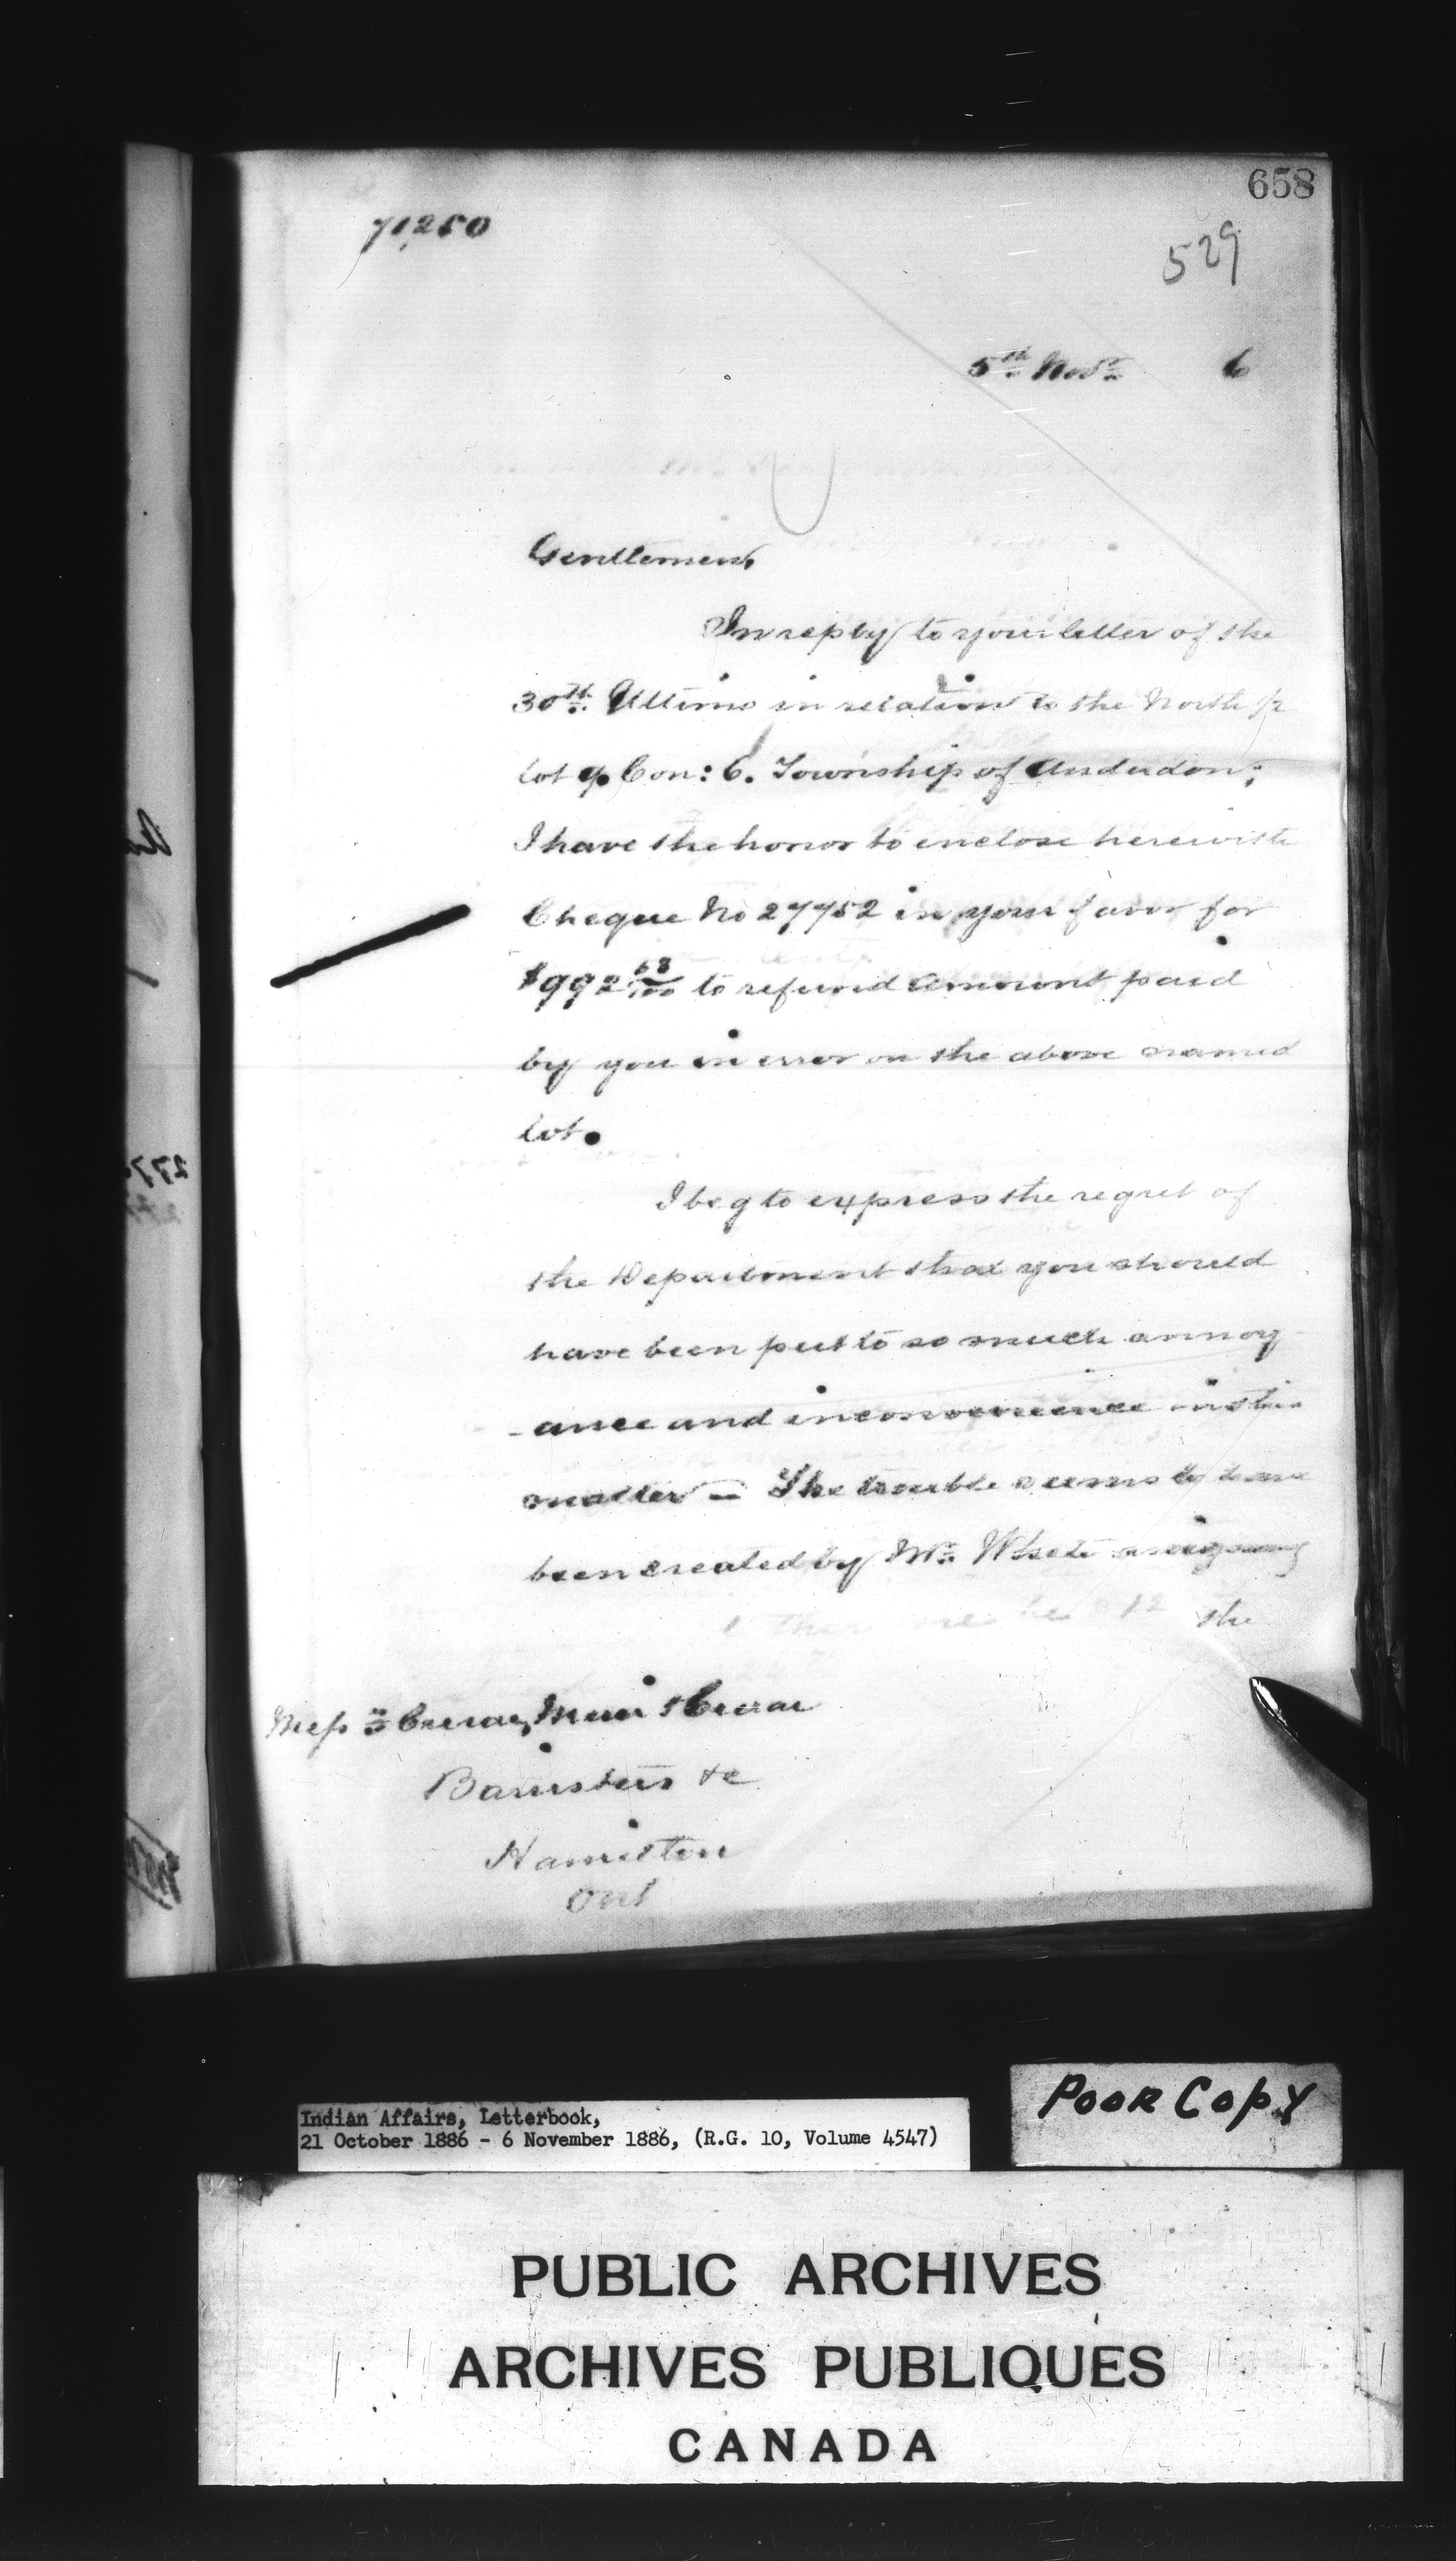 658
71,250
529
5th Novr 6
Gentlemen,
In reply to your letter of the
30th Ultimo in relation to the North 1/2
lot 9. Con: 6. Township of Anderdon;
I have the honor to enclose herewith
Cheque No 27752 in your favor for
$992 to refund amount paid
by you in error on the above named
lot.
I beg to express the regret of
the Department that you should
have been put to so much annoy
-ance and inconvenience in this
matter - The trouble seems to have
been created by Mr. White assigning
the
Messrs Crerar, Muir & Crerar
Barristers &c
Hamilton
Ont
Indian Affairs, Letterbook,
21 October 1886 - 6 November 1886, (R.G. 10, Volume 4547)
POOR COPY
PUBLIC ARCHIVES
ARCHIVES PUBLIQUES
CANADA